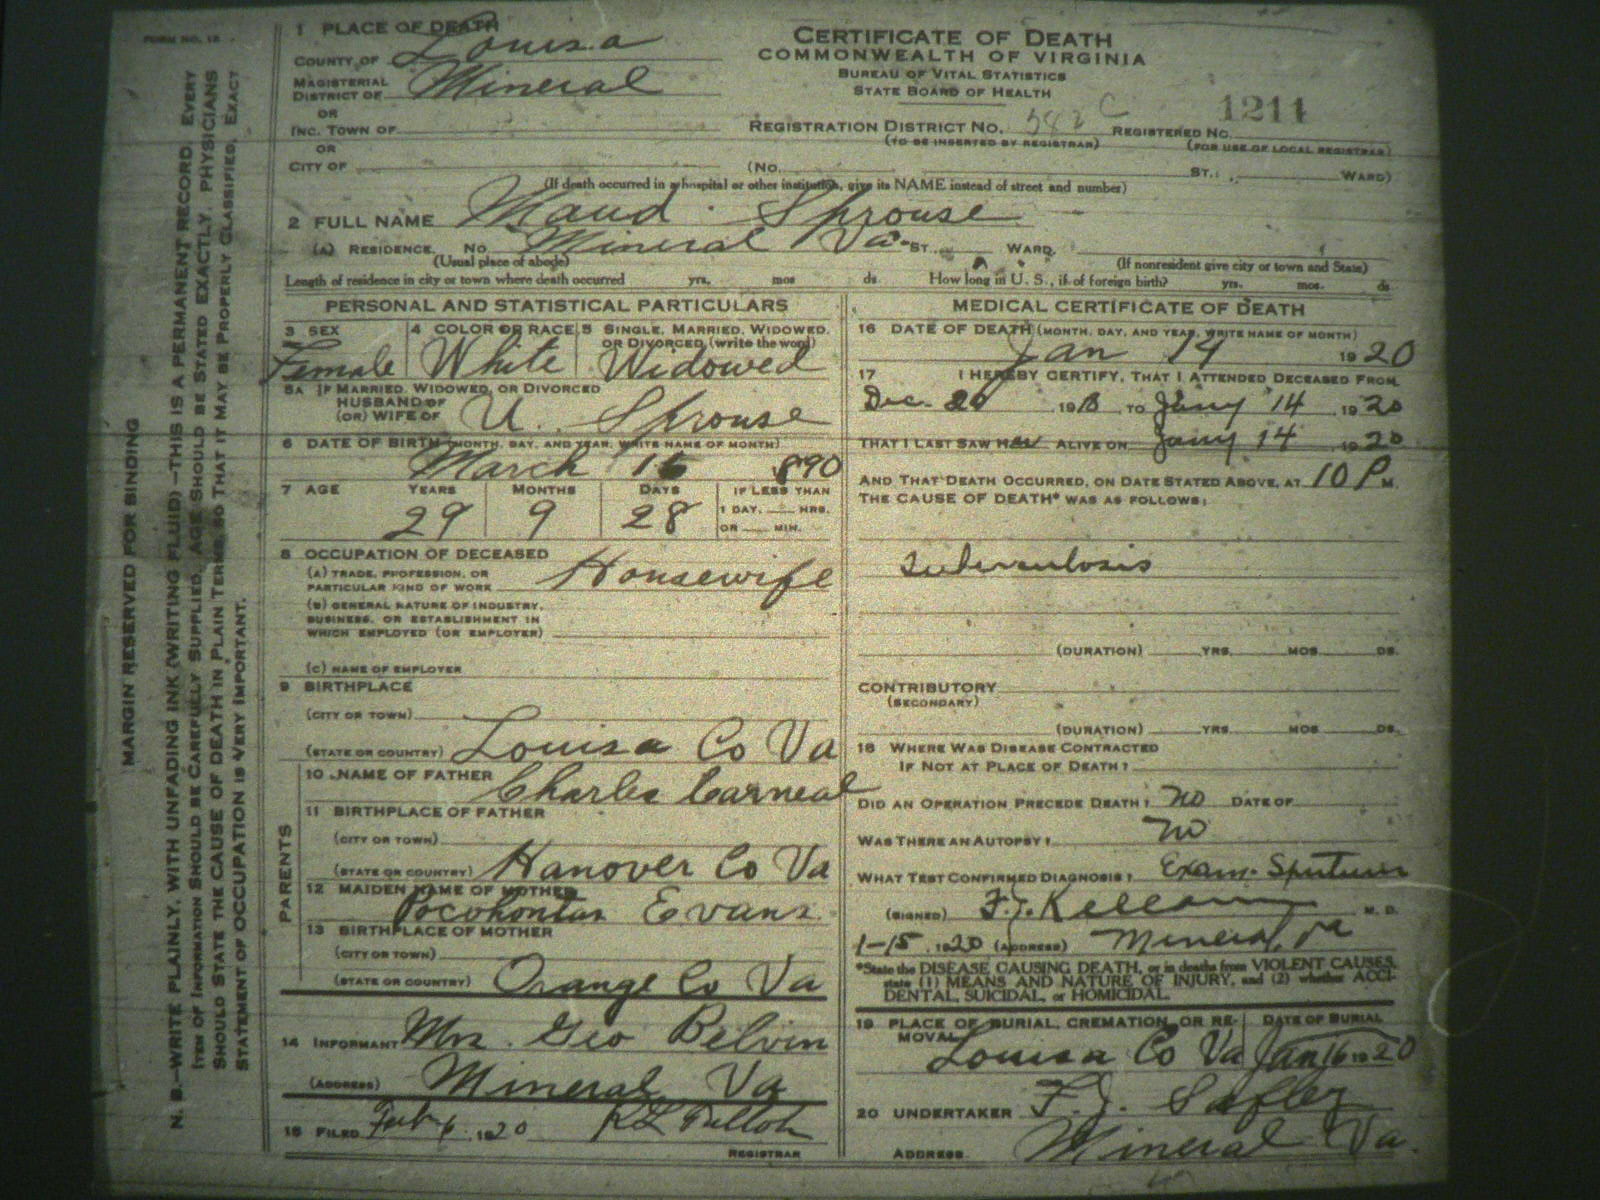 FORM NO. 12
MARGIN RESERVED FOR BINDING
N. B.—WRITE PLAINLY, WITH UNFADING INK (WRITING FLUID)—THIS IS A PERMANENT RECORD. EVERY
ITEM OF INFORMATION SHOULD BE CAREFULLY SUPPLIED. AGE SHOULD BE STATED EXACTLY. PHYSICIANS
SHOULD STATE THE CAUSE OF DEATH IN PLAIN TERMS, SO THAT IT MAY BE PROPERLY CLASSIFIED. EXACT
STATEMENT OF OCCUPATION IS VERY IMPORTANT.
1 PLACE OF DEATH
COUNTY OF Louisa
MAGISTERIAL
DISTRICT OF Mineral
OR
INC. TOWN OF
OR
CITY OF
CERTIFICATE OF DEATH
COMMONWEALTH OF VIRGINIA
BUREAU OF VITAL STATISTICS
STATE BOARD OF HEALTH
1211
REGISTRATION DISTRICT NO. 582 C REGISTERED NO.
(TO BE INSERTED BY REGISTRAR) (FOR USE OF LOCAL REGISTRAR)
(NO. ST.; WARD)
(If death occurred in a hospital or other institution, give its NAME instead of street and number)
2 FULL NAME Maud Sprouse
(A) RESIDENCE. No. Mineral Va. ST. WARD.
(Usual place of abode) (If nonresident give city or town and State)
Length of residence in city or town where death occurred yrs. mos ds. How long in U. S., if of foreign birth? yrs. mos. ds
PERSONAL AND STATISTICAL PARTICULARS
3 SEX 4 COLOR OR RACE 5 SINGLE, MARRIED, WIDOWED,
OR DIVORCED (write the word)
Female White Widowed
5A IF MARRIED, WIDOWED, OR DIVORCED
HUSBAND OF
(OR) WIFE OF U. Sprouse
6 DATE OF BIRTH (MONTH, DAY, AND YEAR, WRITE NAME OF MONTH)
March 16 890
7 AGE YEARS MONTHS DAYS IF LESS THAN
29 9 28 1 DAY, HRS.
OR MIN.
8 OCCUPATION OF DECEASED
(A) TRADE, PROFESSION, OR
PARTICULAR KIND OF WORK Housewife
(B) GENERAL NATURE OF INDUSTRY,
BUSINESS, OR ESTABLISHMENT IN
WHICH EMPLOYED (OR EMPLOYER)
(C) NAME OF EMPLOYER
9 BIRTHPLACE
(CITY OR TOWN)
(STATE OR COUNTRY) Louisa Co Va
PARENTS
10 NAME OF FATHER Charles Carneal
11 BIRTHPLACE OF FATHER
(CITY OR TOWN)
(STATE OR COUNTRY) Hanover Co Va
12 MAIDEN NAME OF MOTHER
Pocohontas Evans
13 BIRTHPLACE OF MOTHER
(CITY OR TOWN)
(STATE OR COUNTRY) Orange Co Va
14 INFORMANT Mrs. Geo Belvin
(ADDRESS) Mineral Va
15 FILED Feb 6 1920
REGISTRAR
MEDICAL CERTIFICATE OF DEATH
16 DATE OF DEATH (MONTH, DAY, AND YEAR, WRITE NAME OF MONTH)
Jan 14 1920
17 I HEREBY CERTIFY, THAT I ATTENDED DECEASED FROM
Dec. 20 191 TO Jany 14 1920
THAT I LAST SAW HER ALIVE ON Jany 14 1920
AND THAT DEATH OCCURRED, ON DATE STATED ABOVE, AT 10 P M.
THE CAUSE OF DEATH* WAS AS FOLLOWS:
Tuberculosis
(DURATION) YRS. MOS DS.
CONTRIBUTORY
(SECONDARY)
(DURATION) YRS. MOS DS.
18 WHERE WAS DISEASE CONTRACTED
IF NOT AT PLACE OF DEATH?
DID AN OPERATION PRECEDE DEATH? no DATE OF
WAS THERE AN AUTOPSY? no
WHAT TEST CONFIRMED DIAGNOSIS? Exam. Sputum
(SIGNED) F. J. M. D.
1-15, 1920 (ADDRESS) Mineral, Va
*State the DISEASE CAUSING DEATH, or in deaths from VIOLENT CAUSES,
state (1) MEANS AND NATURE OF INJURY, and (2) whether ACCI-
DENTAL, SUICIDAL, or HOMICIDAL.
19 PLACE OF BURIAL, CREMATION, OR RE- DATE OF BURIAL
MOVAL
Louisa Co Va Jan 16 1920
20 UNDERTAKER F. J.
ADDRESS Mineral Va.